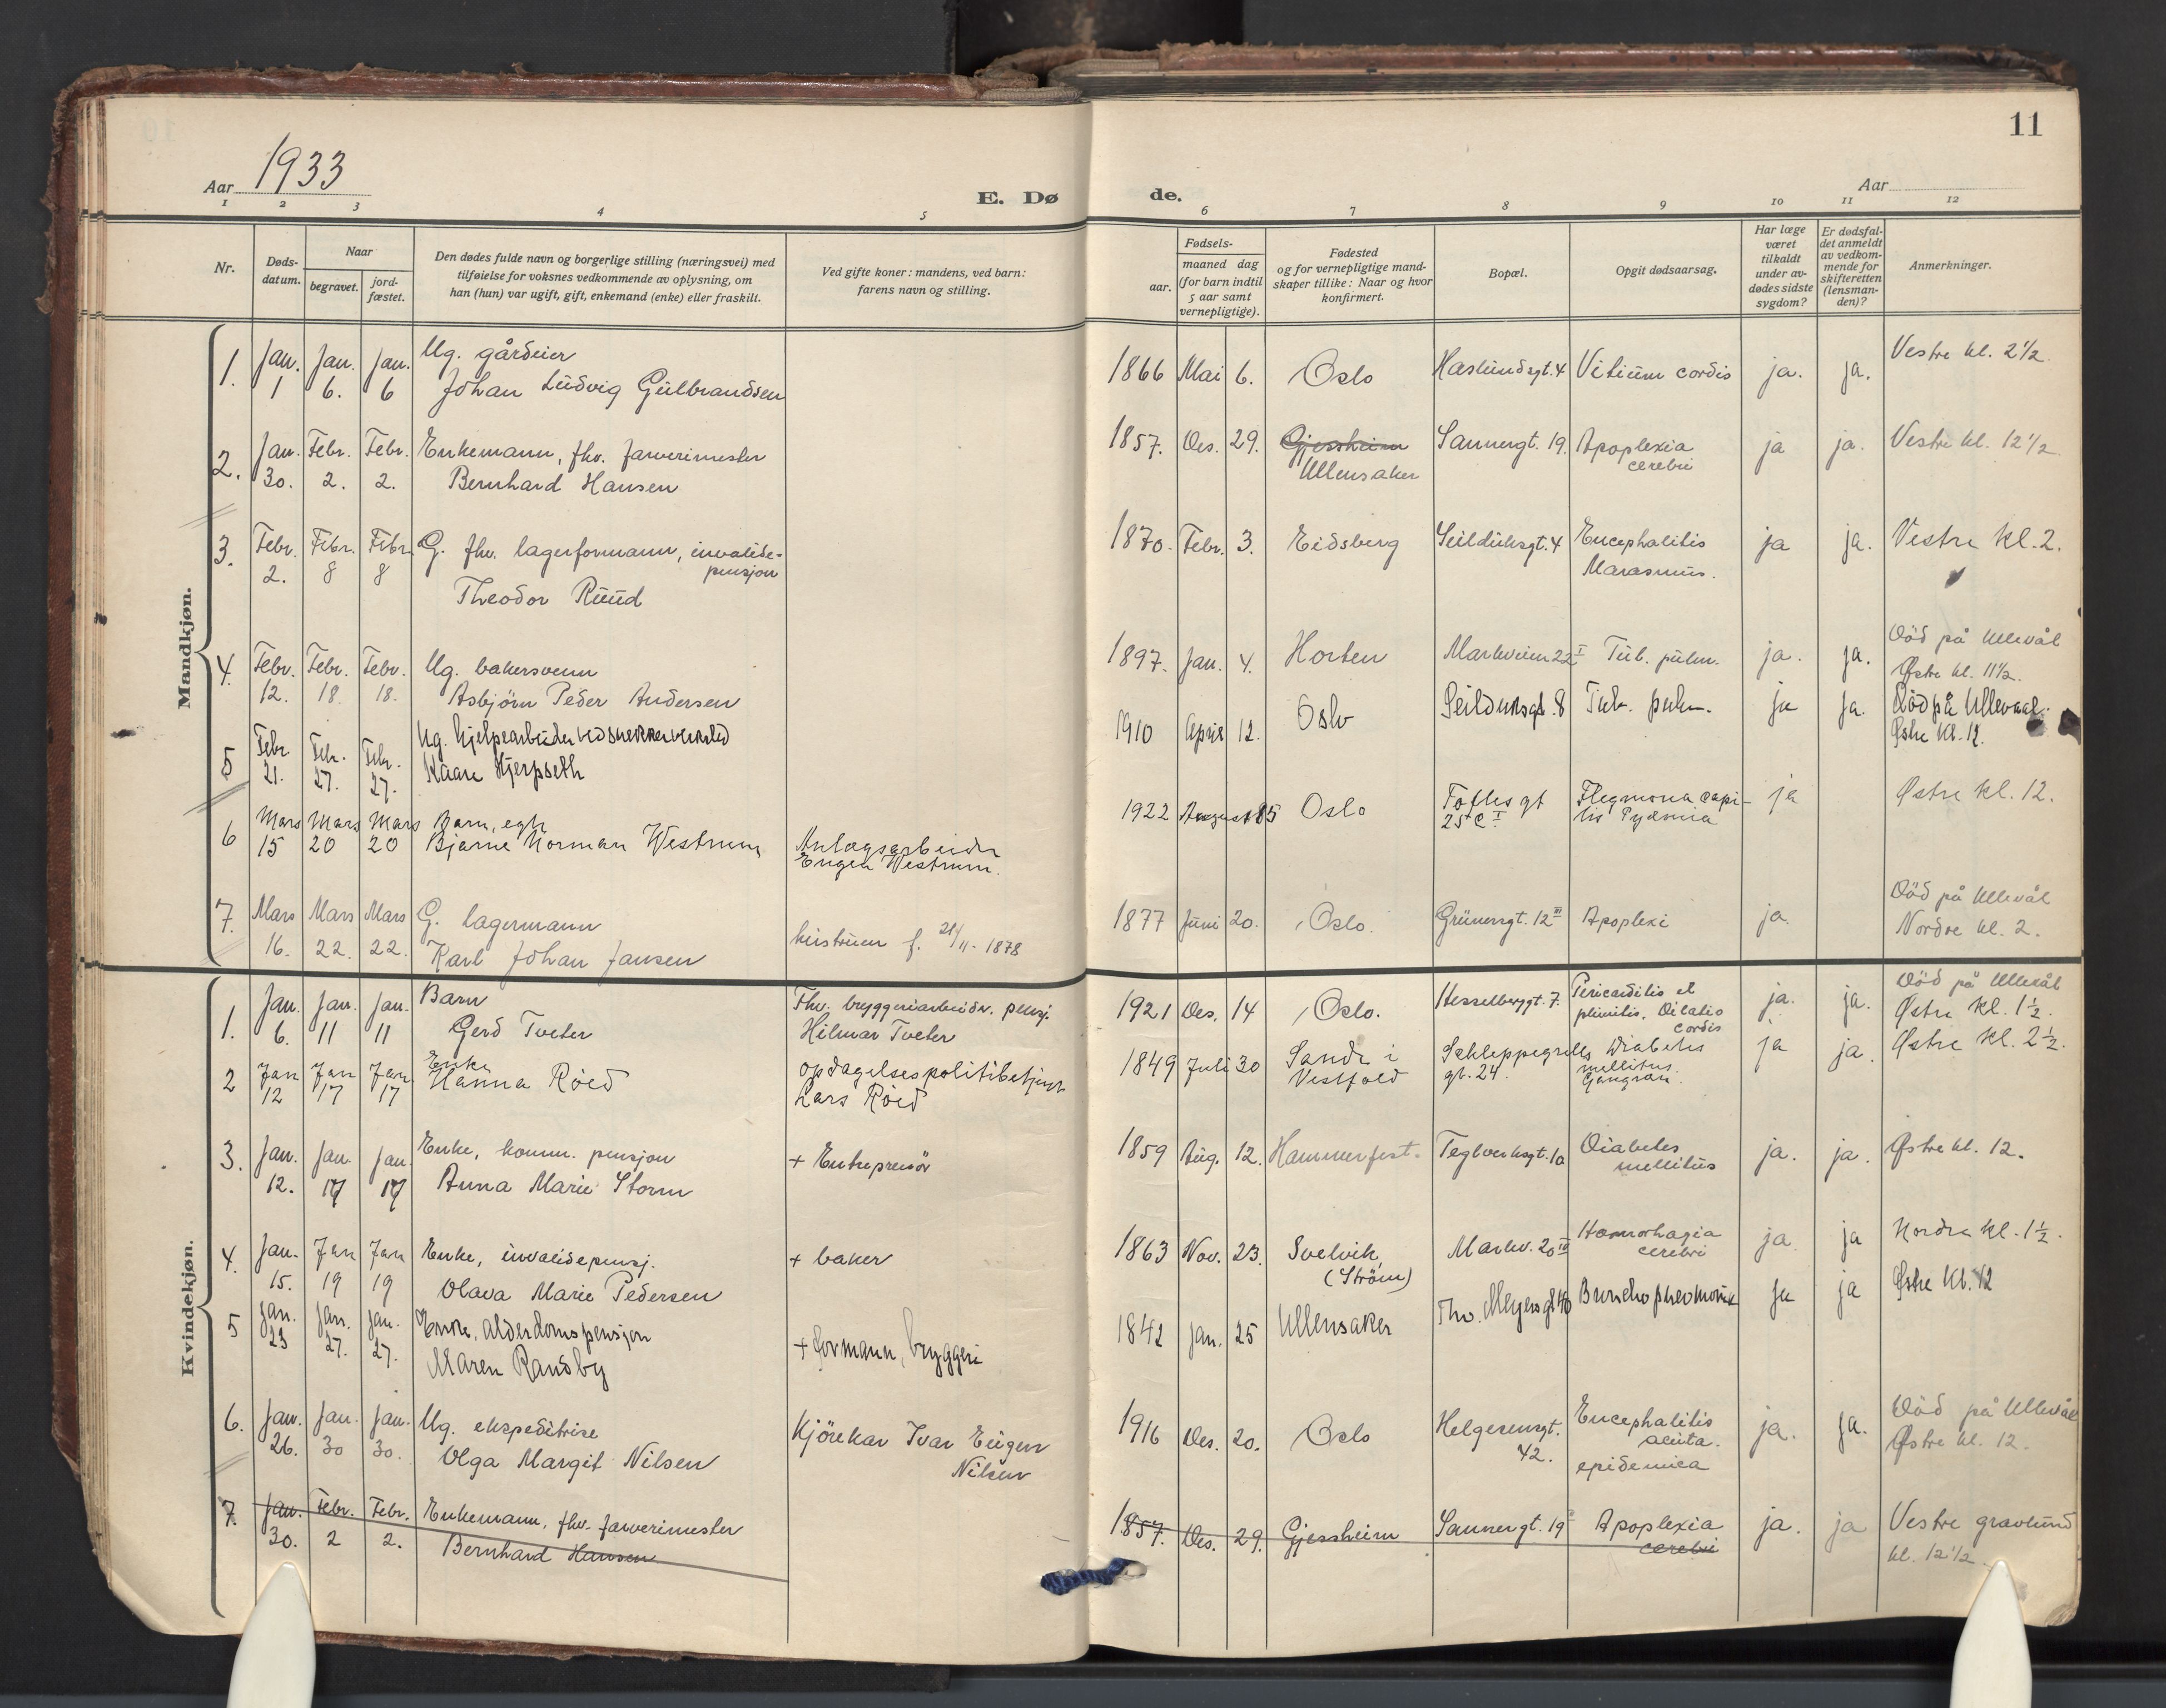 11
Aar 1933
E. Dø
de.
Aar
1 2 3 4 5 6 7 8 9 10 11 12
Nr.
Døds-
datum.
Naar
begravet.
jord-
fæstet.
Den dødes fulde navn og borgerlige stilling (næringsvei) med
tilføielse for voksnes vedkommende av oplysning, om
han (hun) var ugift, gift, enkemand (enke) eller fraskilt.
Ved gifte koner: mandens, ved barn:
farens navn og stilling.
Fødsels-
aar.
maaned dag
(for barn indtil
5 aar samt
vernepligtige).
Fødested
og for vernepligtige mand-
skaper tillike: Naar og hvor
konfirmert.
Bopæl.
Opgit dødsaarsag.
Har læge
været
tilkaldt
under av-
dødes sidste
sygdom?
Er dødsfal-
det anmeldt
av vedkom-
mende for
skifteretten
(lensman-
den)?
Anmerkninger.
Mandkjøn.
1. Jan. 1 Jan. 6. Jan. 6
Ug. gårdeier
Johan Ludvig Gulbrandsen
1866 Mai 6. Oslo Haslundsgt. 4 Vitium cordis ja. ja. Vestre kl. 2 1/2.
2. Jan. 30. Febr. 2. Febr. 2.
Enkemann, fhv. farverimester
Bernhard Hansen
1857. Des. 29. Gjessheim
Ullensaker
Sannergt. 19. Apoplexia
cerebri
ja ja. Vestre kl. 12 1/2
3. Febr. 2. Febr. 8 Febr. 8
G. fhv. lagerformann, invalide-
pensjon
Theodor Ruud
1870. Febr. 3. Eidsberg Seilduksgt. 4 Encephalitis
Marasmus.
ja ja. Vestre kl. 2.
4. Febr. 12. Febr. 18. Febr. 18.
Ug. bakersvenn
Asbjörn Peder Andersen
1897. Jan. 4. Horten Markveien 22 I Tub. pulm. ja. ja. Död på Ullevål
Østre kl. 11 1/2.
5 Febr. 21. Febr. 27. Febr. 27.
Ug. hjelpearbeider ved snekkerverksted
Kaare Hjerpseth
1910 April 12. Oslo Seilduksgt. 8 Tub. pulm. ja ja. Död på Ullevaal.
Østre kl. 12.
6 Mars 15 Mars 20 Mars 20
Barn, egte
Bjarne Norman Westrum
Anlægsarbeider
Eugen Westrum.
1922 August 15 Oslo Toftes gt
25 C I
Flegmona capi-
tis Pyæmia
ja Østre kl. 12.
7. Mars 16. Mars 22. Mars 22.
G. lagermann
Karl Johan Jansen
hustruen f. 21/11-1878
1877 Juni 20. Oslo. Grünersgt. 12 III Apoplexi ja. Död på Ullevål
Nordre kl. 2.
Kvindekjøn.
1. Jan. 6. Jan. 11 Jan. 11
Barn
Gerd Tveter
Fhv. bryggeriarbeider. pensj.
Hilmar Tveter
1921 Des. 14 Oslo. Hesselberggt. 7. Pericarditis et
pluritis. Dilatio
cordis
ja. ja. Död på Ullevål
Østre kl. 1 1/2.
2 Jan 12 Jan 17 Jan 17
Enke
Hanna Röed
opdagelsespolitibetjent
Lars Röed
1849 Juli 30 Sande i
Vestfold
Schleppegrells
gt. 24.
Diabetes
mellitus.
Gangræn.
ja ja. Østre kl. 2 1/2.
3. Jan. 12. Jan. 17 Jan. 17
Enke, komm. pensjon
Anna Marie Storm
+ Entreprenör
1859 Aug. 12. Hammerfest. Teglverksgt. 10 Diabetes
mellitus
ja. ja. Østre kl. 12.
4. Jan. 15. Jan 19 Jan 19
Enke, invalidepensj.
Olava Marie Pedersen
+ baker
1863 Nov. 23. Svelvik
(Ström)
Markv. 20 IV Hæmorhagia
cerebri
ja ja Nordre kl. 1 1/2.
5 Jan. 23 Jan. 27. Jan. 27.
Enke, alderdomspensjon
Maren Randby
+ formann, bryggeri
1842 Jan. 25 Ullensaker Thv. Meyers gt 40 Bronchopneumonie ja ja Østre kl. 12
6. Jan. 26. Jan. 30 Jan. 30.
Ug. ekspeditrise
Olga Margit Nilsen
Kjörekar Ivar Eugen
Nilsen
1916 Des. 20. Oslo Helgesensgt.
42.
Encephalitis
acuta.
epidemica
ja. ja. Död på Ullevål
Østre kl. 12.
7. Jan. 30. Febr. 2 Febr. 2.
Enkemann, fhv. farverimester
Bernhard Hansen
1857. Des. 29. Gjessheim Sannergt. 19 Apoplexia
cerebri
ja. ja Vestre gravlund
kl. 12 1/2.